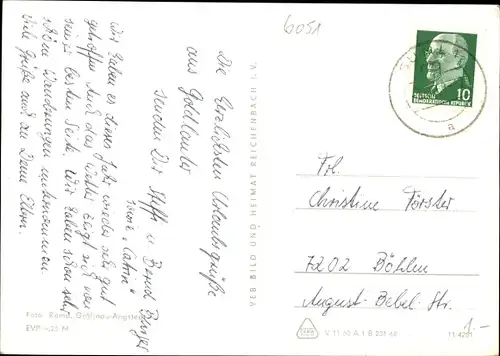 6051
Die herzlichsten Urlaubsgrüße
aus Goldlauter
senden Dir Steffi u. Bernd Burger
Wir haben es dieses Jahr wieder sehr gut
getroffen. Auch das Wetter zeigt sich von
seiner besten Seite. Wir haben schon sehr
schöne Wanderungen unternommen.
Viele Grüße auch an Deine Eltern.
VEB BILD UND HEIMAT REICHENBACH I. V.
Foto: Remd. Gräfinau-Angstedt
EVP M
10
DEUTSCHE
DEMOKRATISCHE REPUBLIK
a
Frl.
Christine Förster
7202 Böhlen
August-Bebel-Str.
1.-
V 11 50 A 1 B